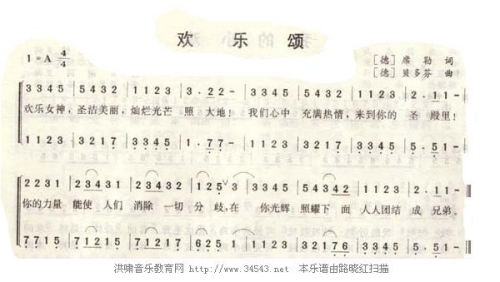 欢乐颂
1=A 4/4
[德]席勒 词
[德]贝多芬 曲
3345 | 5432 | 1123 | 3·22- | 3345 | 5432 | 1123 | 2·11-
欢乐女神，圣洁美丽，灿烂光芒 照 大地！我们心中 充满热情，来到你的 圣 殿里！
1123 | 3217 | 1·77-
2231 | 23431 | 23432 | 125 3 | 3345 | 54342 | 1123 | 2·11-
你的力量 能使 人们 消除 一切 分歧，在 你光辉 照耀下 面 人人团结 成 兄弟。
7715 | 71215 | 71217 | 625 1 | 1123
洪啸音乐教育网 http://www.34543.net 本乐谱由路晓红扫描